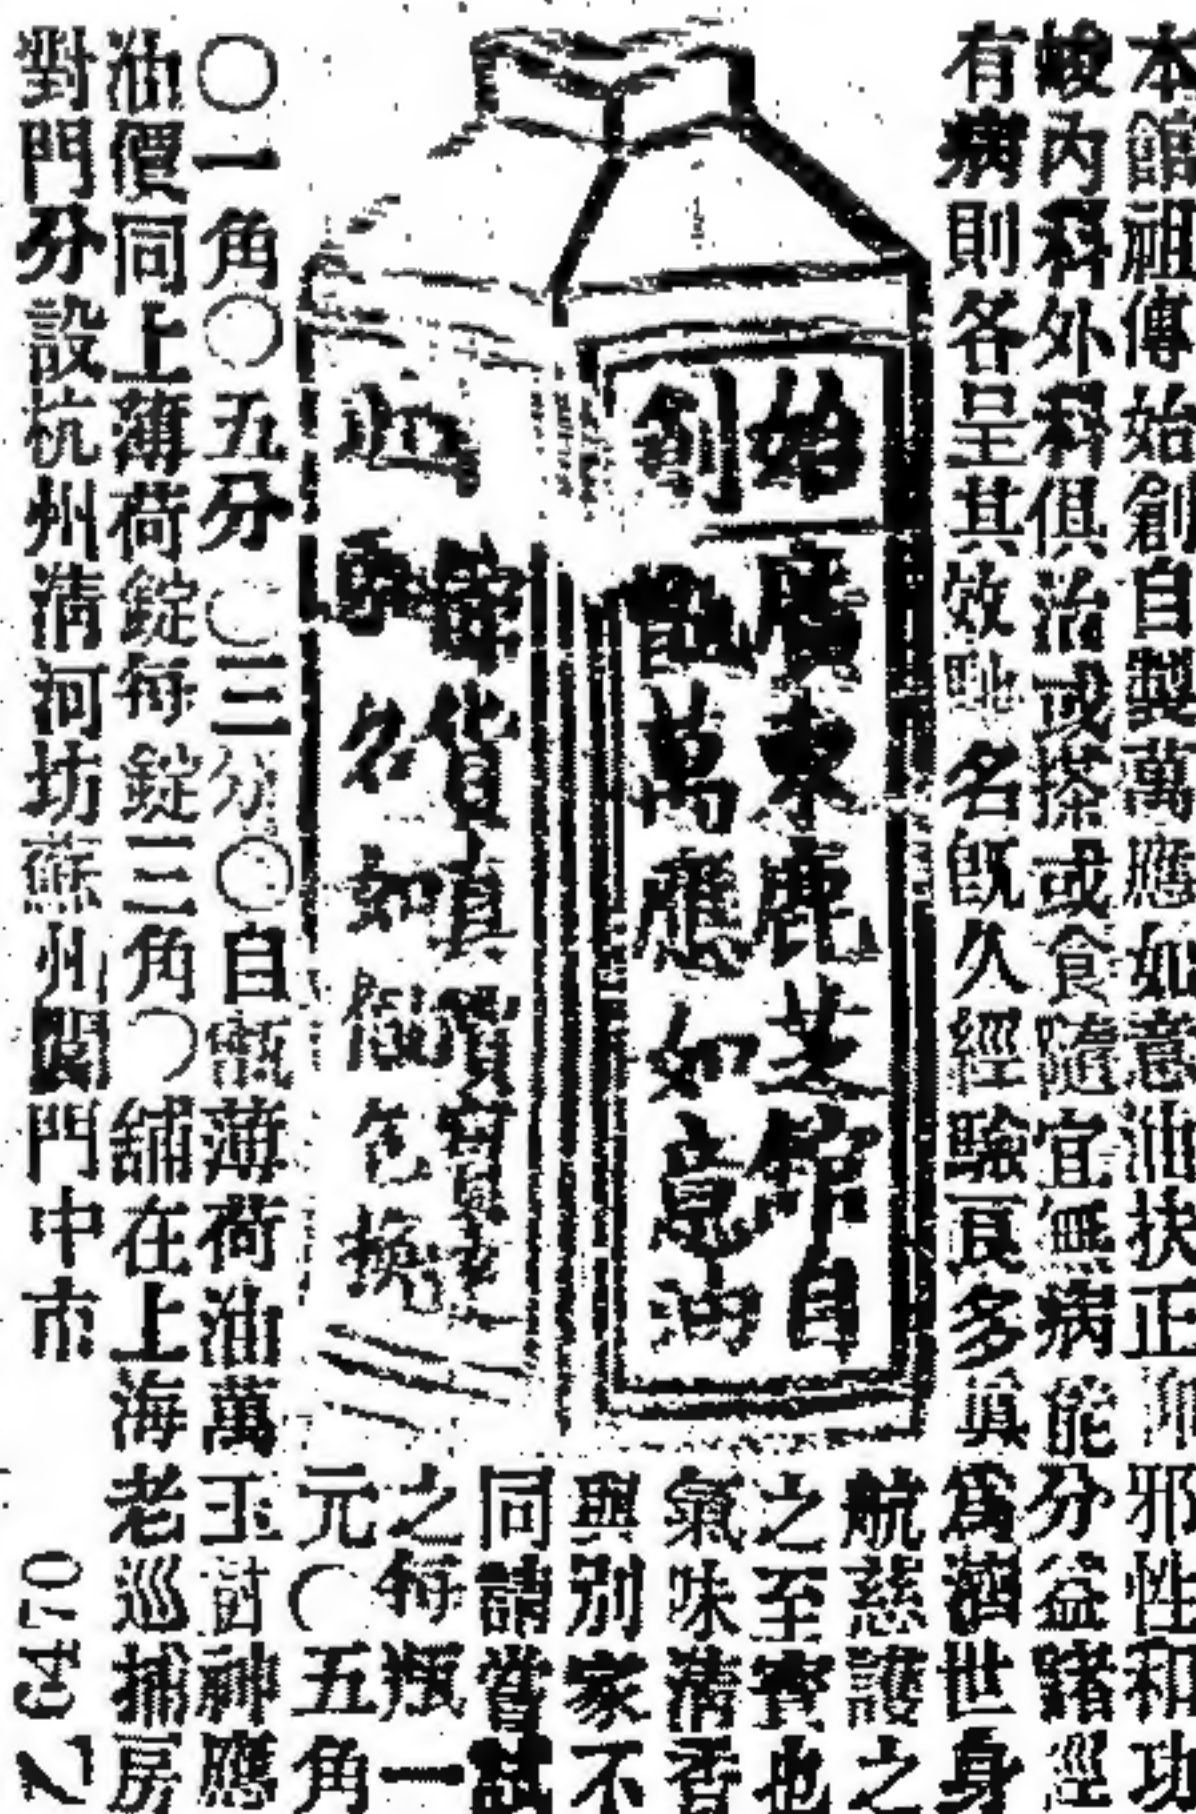 本館祖傳始創自製萬應如意油扶正卻邪性和功
峻內科外科俱治或搽或食隨宜無病能分益諸經
有病則各呈其效馳名旣久經驗良多眞爲濟世身
航慈護之
之至寶也
氣味清香
與別家不
同請嘗試
之每瓶一
元〇五角
〇一角〇五分〇三分〇自製薄荷油萬玉樹神應
油價同上薄荷錠每錠三角〇舖在上海老巡捕房
對門分設杭州清河坊蘇州閶門中市
始創
廣東鹿芝館自
製萬應如意油
貨真價實
名如假包換
乙6470